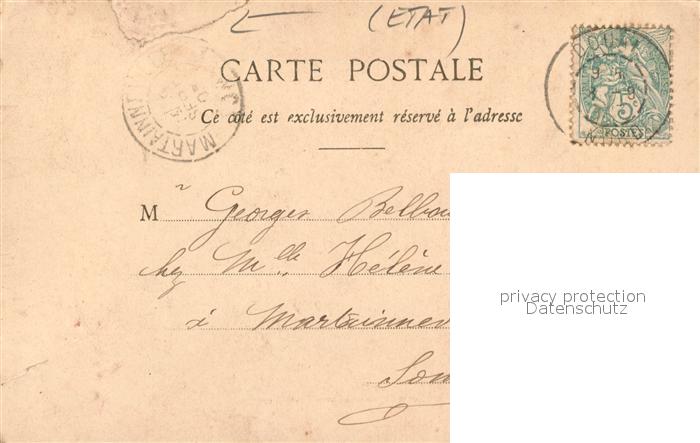 (ETAT)
CARTE POSTALE
Ce côté est exclusivement réservé à l'adresse
MARTAINN
5
POSTES
M r Georges
chez Melle Hélène
à
privacy protection
Datenschutz